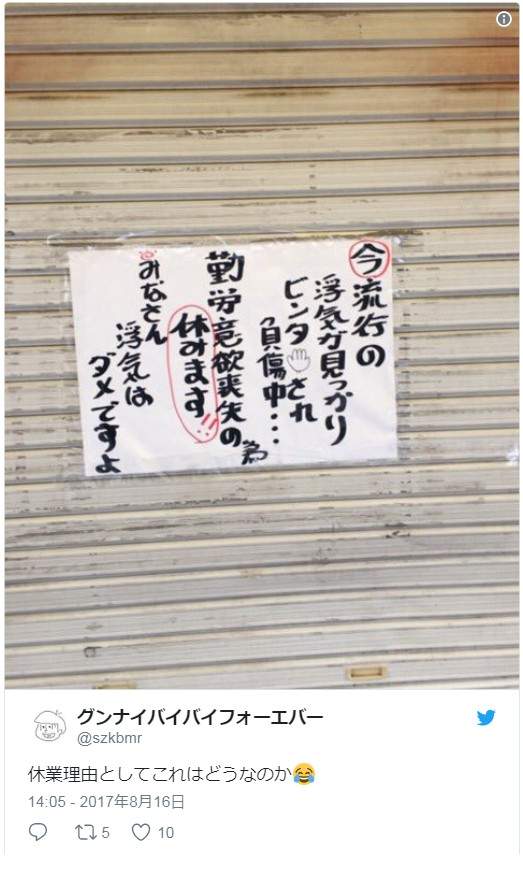 今流行の
浮気が見つかり
ビンタされ
負傷中・・・
勤労意欲喪失の為
休みます!!
みなさん
浮気は
ダメですよ
グンナイバイバイフォーエバー
@szkbmr
休業理由としてこれはどうなのか😂
14:05 - 2017年8月16日
5
10